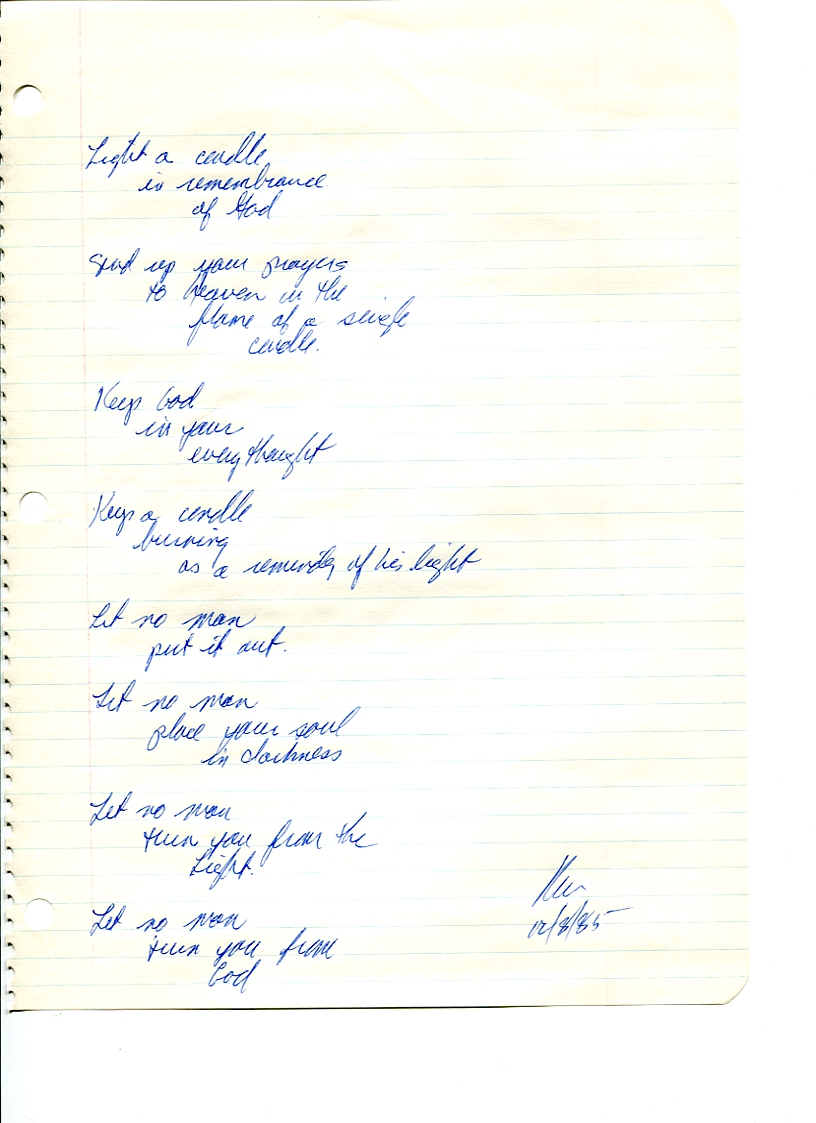 Light a candle
in remembrance
of God
Send up your prayers
to heaven in the
flame of a single
candle.
Keep God
in your
every thought
Keep a candle
burning
as a reminder of his light
Let no man
put it out.
Let no man
place your soul
in darkness
Let no man
turn you from the
Light.
Let no man
turn you from
God
12/8/85